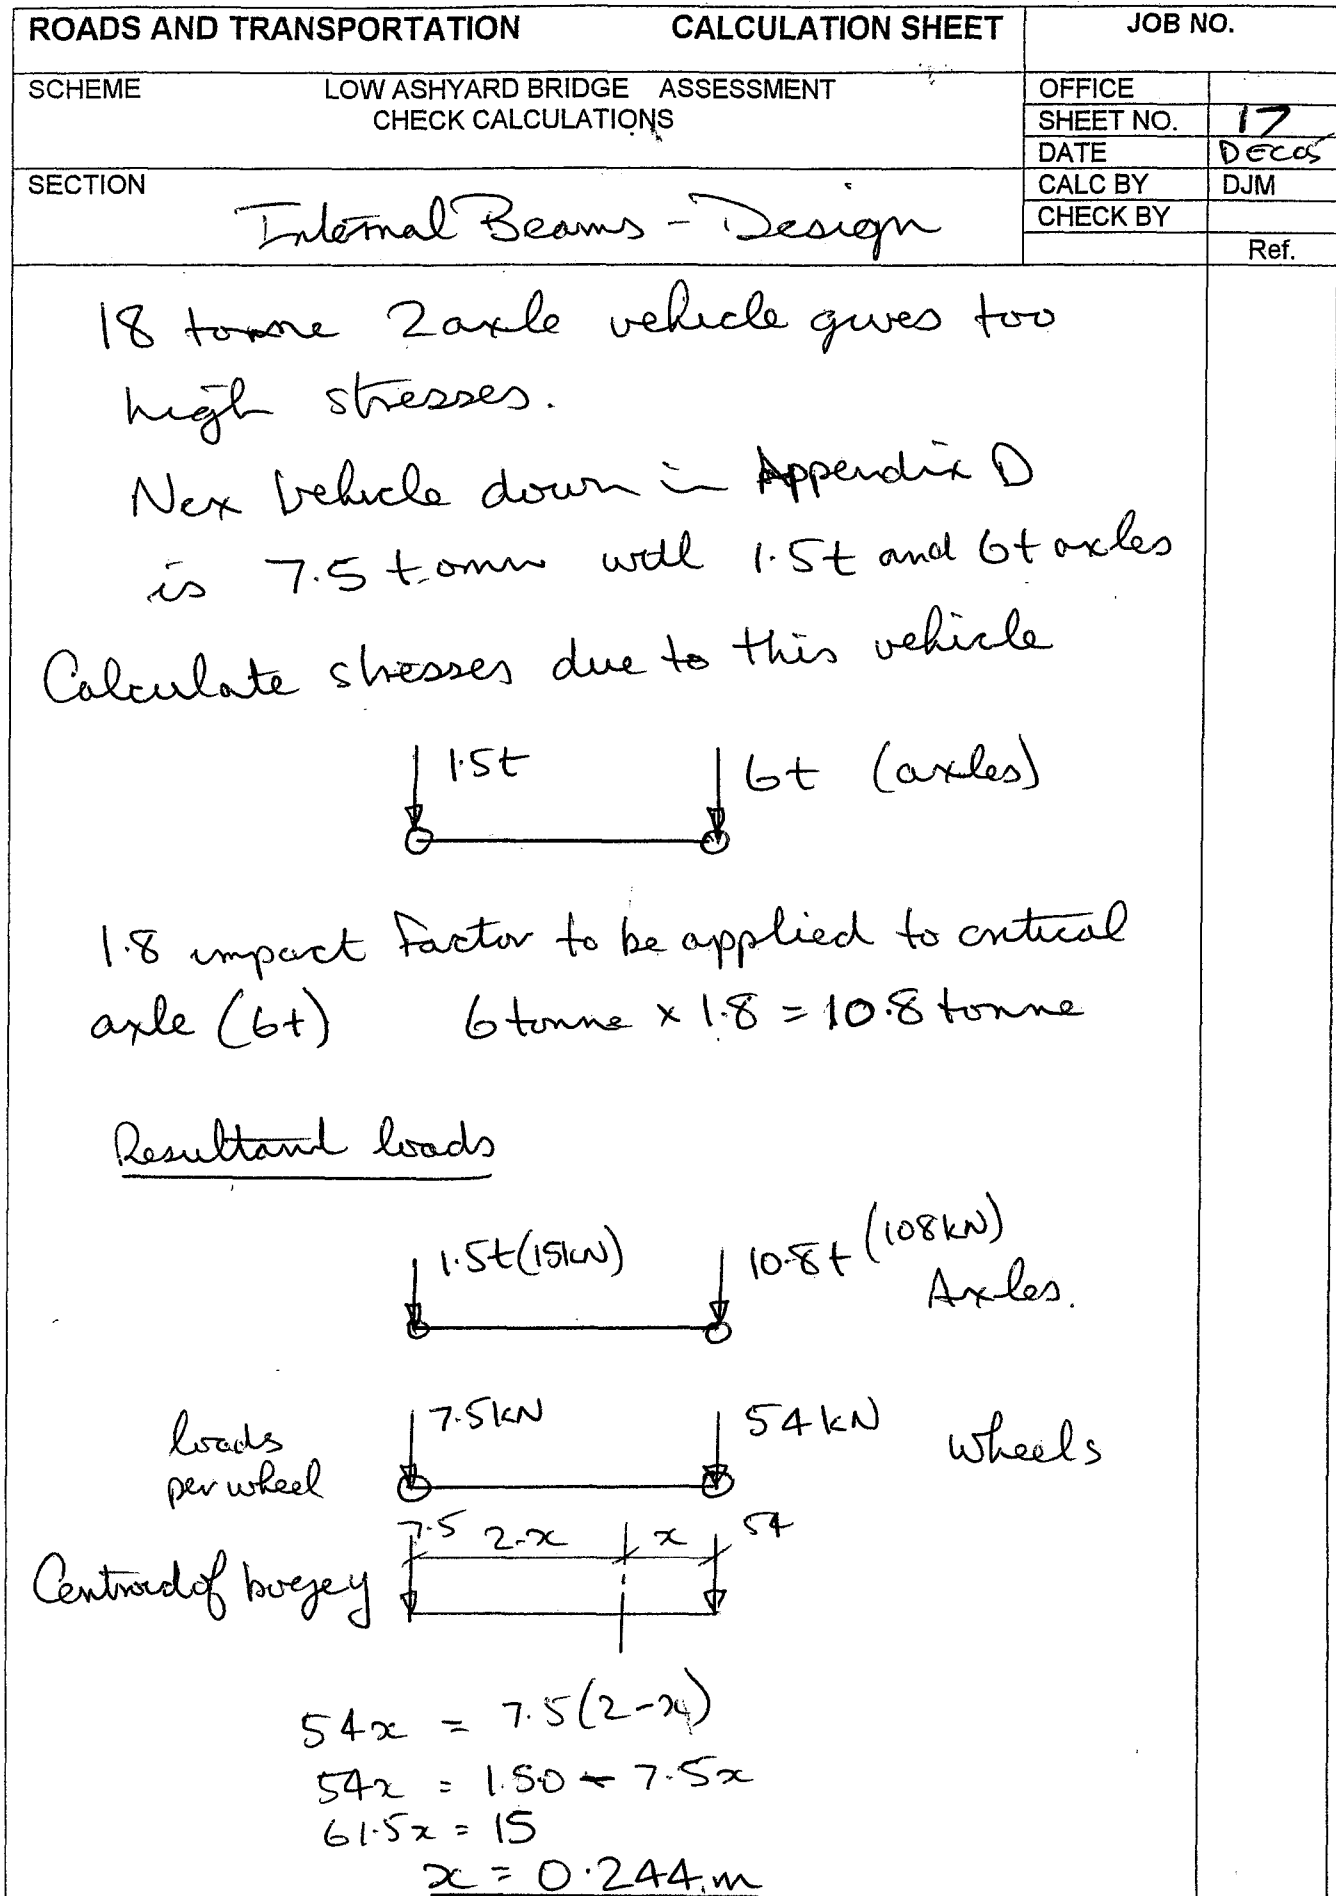 ROADS AND TRANSPORTATION CALCULATION SHEET JOB NO.
SCHEME LOW ASHYARD BRIDGE ASSESSMENT OFFICE
CHECK CALCULATIONS SHEET NO. 17
DATE DEC05
SECTION CALC BY DJM
Internal Beams - Design CHECK BY
Ref.
18 tonne 2 axle vehicle gives too
high stresses.
Nex vehicle down in Appendix D
is 7.5 tonne with 1.5t and 6t axles
Calculate stresses due to this vehicle
1.5t 6t (axles)
1.8 impact factor to be applied to critical
axle (6t) 6 tonne x 1.8 = 10.8 tonne
Resultant loads
1.5t (15kN) 10.8t (108kN)
Axles.
7.5kN 54kN
loads wheels
per wheel
7.5 2-x x 54
Centroid of bogey
54x = 7.5(2-x)
54x = 1.50 - 7.5x
61.5x = 15
x = 0.244.m